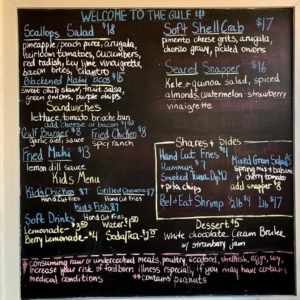 WELCOME TO THE GULF
Scallops Salad $18
pineapple, peach puree, arugula,
heirloom tomatoes, cucumbers,
red radish, key lime vinaigrette
bacon bites, cilantro
Blackened Mahi Tacos $15
sweet chili slaw, fruit salsa,
green onions, purple chips
Sandwiches
lettuce, tomato, brioche bun
add cheese or bacon
Gulf Burger $8 Fried Chicken $8
garlic aioli, sauce spicy ranch
Fried Mahi $13
lemon dill sauce
Kids Menu
Kids Chicken $7 Grilled Cheese $7
Hand Cut Fries Hand Cut Fries
Kids Fish $7
Hand Cut Fries
Soft Drinks
Lemonade Water
Berry Lemonade $4 Soda/Tea
Soft Shell Crab $17
pimento cheese grits, arugula,
chorizo gravy, pickled onions
Seared Snapper $16
Kale + quinoa salad, spiced
almonds, watermelon strawberry
vinaigrette
Shares + Sides
Hand Cut Fries
Hummus
Smoked Tuna Dip
+ pita chips
Mixed Green Salad $5
spring mix + balsamic
cherry tomato
add snapper $8
Peel + Eat Shrimp
Dessert $5
White Chocolate Creme Brulee
w/ strawberry jam
*consuming raw or undercooked meats, poultry, seafood, shellfish, eggs, soy,
increase your risk of foodborn illness, especially if you may have certain
medical conditions **contains peanuts